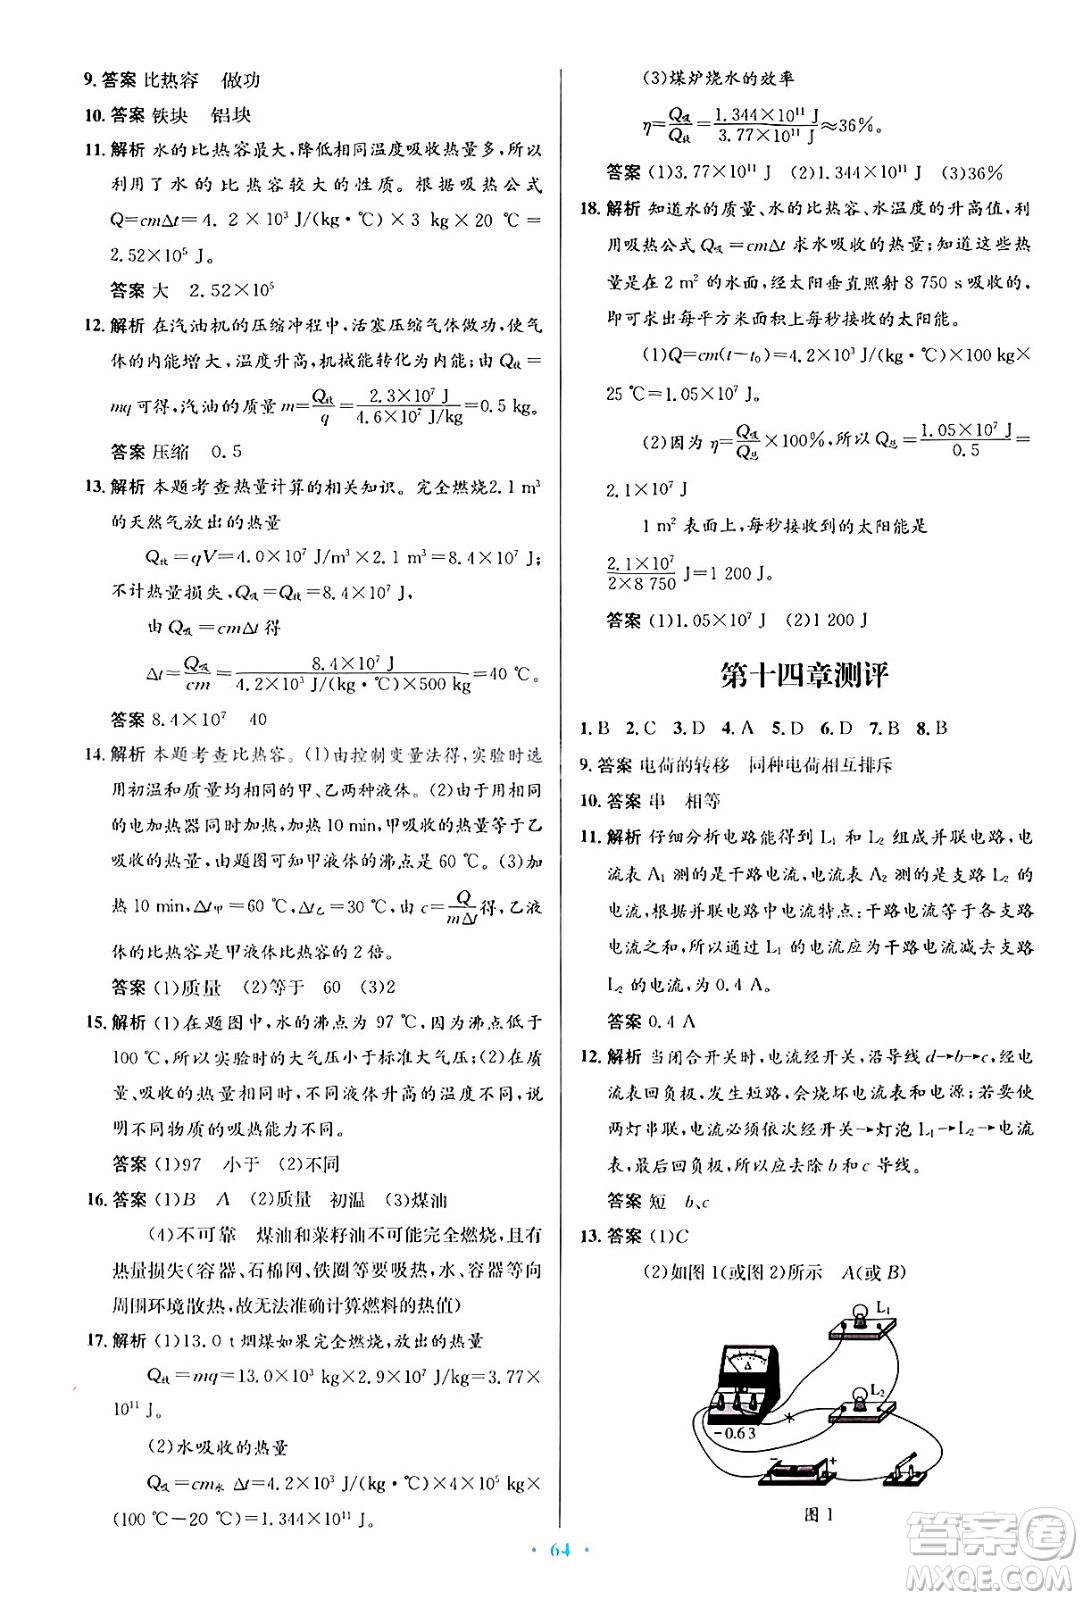 9. 答案 比热容　做功
10. 答案 铁块　铝块
11. 解析 水的比热容最大,降低相同温度吸收热量多,所以
利用了水的比热容较大的性质。根据吸热公式
Q=cmΔt=4. 2×10³ J/(kg·℃)×3 kg×20 ℃=
2.52×10⁵ J。
答案 大　2.52×10⁵
12. 解析 在汽油机的压缩冲程中,活塞压缩气体做功,使气
体的内能增大,温度升高,机械能转化为内能;由 Q放=
mq 可得,汽油的质量 m=Q放/q=2.3×10⁷ J/4.6×10⁷ J/kg=0.5 kg。
答案 压缩　0.5
13. 解析 本题考查热量计算的相关知识。完全燃烧2.1 m³
的天然气放出的热量
Q放=qV=4.0×10⁷ J/m³×2.1 m³=8.4×10⁷ J;
不计热量损失,Q吸=Q放=8.4×10⁷ J,
由 Q吸=cmΔt 得
Δt=Q吸/cm=8.4×10⁷ J/4.2×10³ J/(kg·℃)×500 kg=40 ℃。
答案 8.4×10⁷　40
14. 解析 本题考查比热容。(1)由控制变量法得,实验时选
用初温和质量均相同的甲、乙两种液体。(2)由于相同
的电加热器同时加热,加热10 min,甲吸收的热量等于乙
吸收的热量,由题图可知甲液体的沸点是 60 ℃。(3)加
热 10 min,Δt甲=60 ℃,Δt乙=30 ℃,由 c=Q/mΔt得,乙液
体的比热容是甲液体比热容的 2 倍。
答案 (1)质量　(2)等于　60　(3)2
15. 解析 (1)在题图中,水的沸点为 97 ℃,因为沸点低于
100 ℃,所以实验时的大气压小于标准大气压;(2)在质
量、吸收的热量相同时,不同液体升高的温度不同,说
明不同物质的吸热能力不同。
答案 (1)97　小于　(2)不同
16. 答案 (1)B　A　(2)质量　初温　(3)煤油
(4)不可靠　煤油和菜籽油不可能完全燃烧,并且有
热量损失(容器、石棉网、铁圈等要吸热,水、容器等向
周围环境散热,故无法准确计算燃料的热值)
17. 解析 (1)13.0 t 烟煤如果完全燃烧,放出的热量
Q放=mq=13.0×10³ kg×2.9×10⁷ J/kg=3.77×
10¹¹ J。
(2)水吸收的热量
Q吸=cm水 Δt=4.2×10³ J/(kg·℃)×4×10⁵ kg×
(100 ℃-20 ℃)=1.344×10¹¹ J。
(3)煤炉烧水的效率
η=Q吸/Q放=1.344×10¹¹ J/3.77×10¹¹ J≈36%。
答案 (1)3.77×10¹¹ J　(2)1.344×10¹¹ J　(3)36%
18. 解析 知道水的质量、水的比热容、水温度的升高值,利
用吸热公式 Q吸=cmΔt 求水吸收的热量;知道这些热
量是在 2 m² 的水面,经太阳垂直照射 8 750 s 吸收的,
即可求出每平方米面积上每秒接收的太阳能。
(1)Q=cm(t-t₀)=4.2×10³ J/(kg·℃)×100 kg×
25 ℃=1.05×10⁷ J。
(2)因为 η=Q吸/Q总×100%,所以 Q总=1.05×10⁷ J/0.5=
2.1×10⁷ J
1 m² 表面上,每秒接收到的太阳能是
2.1×10⁷/2×8 750 J=1 200 J。
答案 (1)1.05×10⁷ J　(2)1 200 J
第十四章测评
1. B　2. C　3. D　4. A　5. D　6. D　7. B　8. B
9. 答案 电荷的转移　同种电荷相互排斥
10. 答案 串　相等
11. 解析 仔细分析电路能得到 L₁ 和 L₂ 组成并联电路,电
流表 A₁ 测的是干路电流,电流表 A₂ 测的是支路 L₂ 的
电流,根据并联电路中电流特点:干路电流等于各支路
电流之和,所以通过 L₁ 的电流应为干路电流减去支路
L₂ 的电流,为 0.4 A。
答案 0.4 A
12. 解析 当闭合开关时,电流经开关,沿导线 d→b→c,经电
流表回负极,发生短路,会烧坏电流表和电源;若要使
两灯串联,电流必须依次经开关→灯泡 L₁→L₂→电流
表,最后回负极,所以应去除 b 和 c 导线。
答案 短　b、c
13. 答案 (1)C
(2)如图 1(或图 2)所示　A(或 B)
L₁
A
L₂
-0.6 3
−　+
图 1
64
答案卷
MXQE.COM